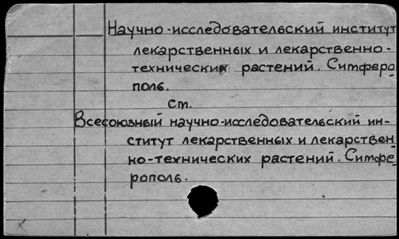 Научно-исследовательский институт
лекарственных и лекарственно-
технических растений. Симферо
поль.
см.
Всесоюзный научно-исследовательский ин-
ститут лекарственных и лекарствен
но-технических растений. Симфе
рополь.